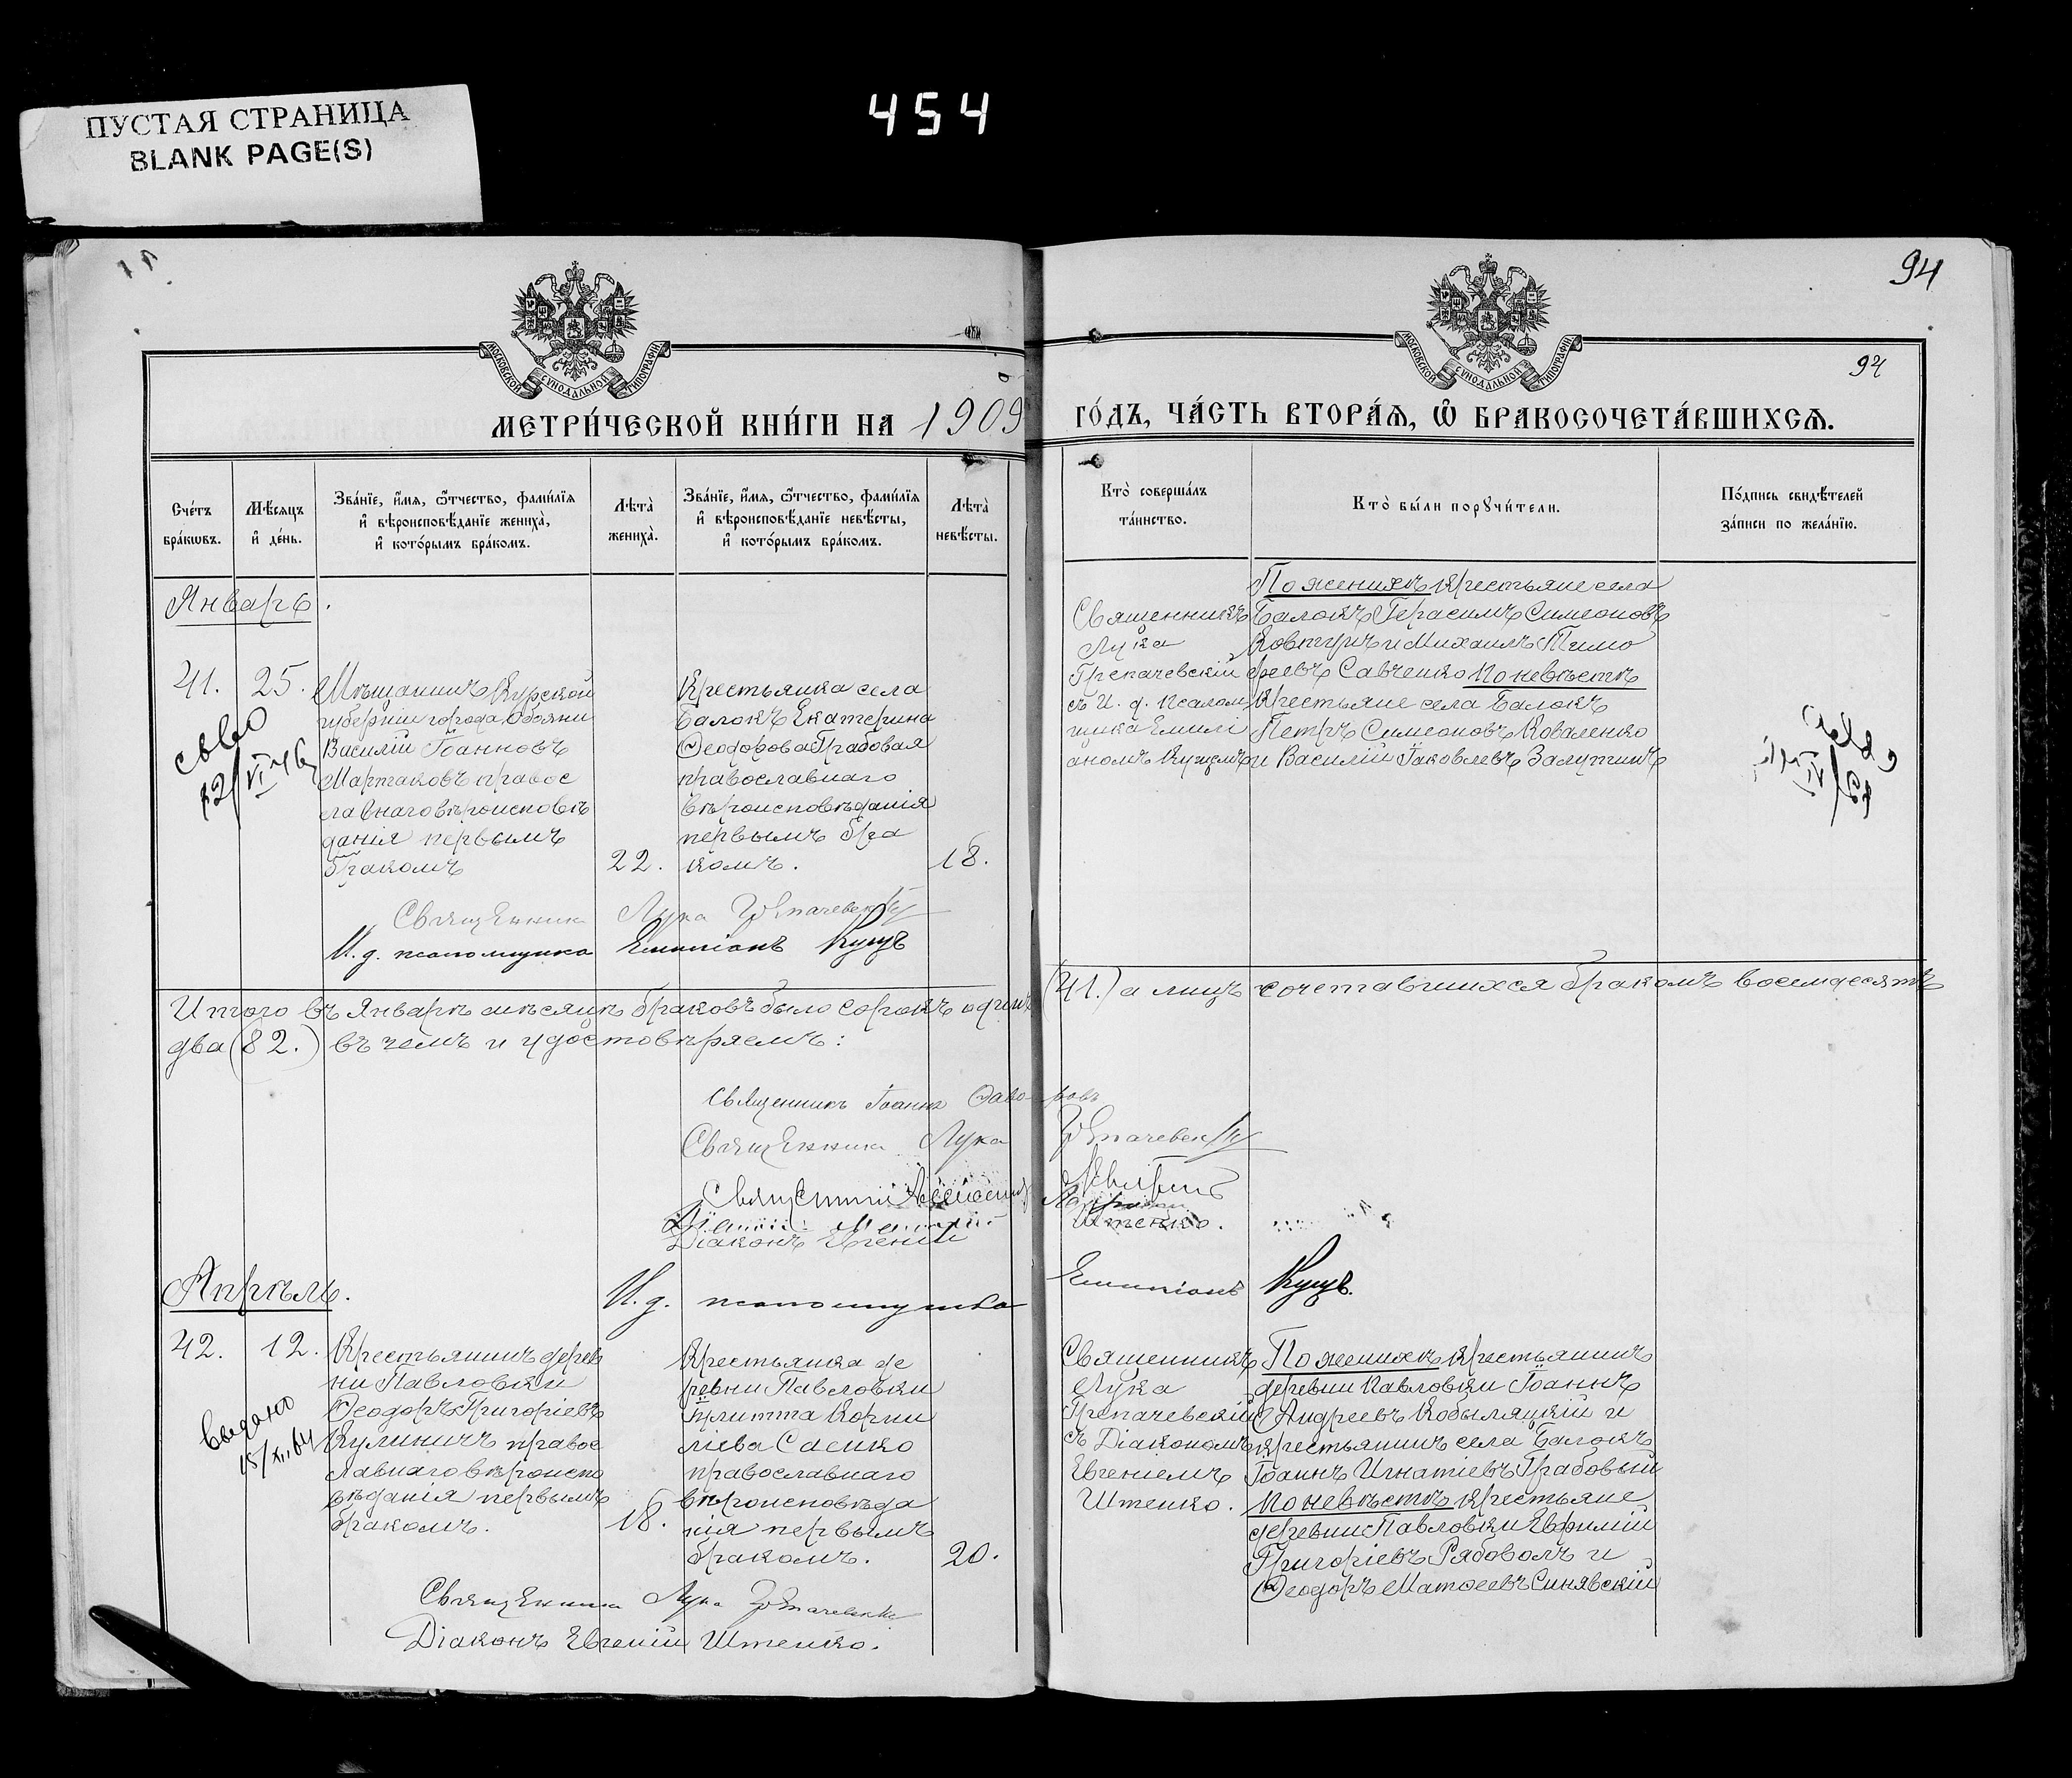 454
ПУСТАЯ СТРАНИЦА
BLANK PAGE(S)
94
94
МОСКОВСКОЙ СѴНОДАЛЬНОЙ ТИПОГРАФІИ
МОСКОВСКОЙ СѴНОДАЛЬНОЙ ТИПОГРАФІИ
МЕТРИ́ЧЕСКОЙ КНИ́ГИ НА 1909 ГО́ДЪ, ЧА́СТЬ ВТОРА́Ѧ, Ѡ҆ БРАКОСОЧЕТА́ВШИХСѦ.
Сче́тъ бра́кѡвъ.
Мѣ́сяцъ и҆ де́нь.
Зва́нїе, и҆́мя, ѻ҆́тчество, фами́лїя и҆ вѣроисповѣ́данїе жениха̀, и҆ кото́рымъ бра́комъ.
Лѣта̀ жениха̀.
Зва́нїе, и҆́мя, ѻ҆́тчество, фами́лїя и҆ вѣроисповѣ́данїе невѣ́сты, и҆ кото́рымъ бра́комъ.
Лѣта̀ невѣ́сты.
Кто̀ соверша́лъ та́инство.
Кто̀ бы́ли порꙋчи́тели.
По́дпись свидѣ́телей за́писи по жела́нїю.
Январь.
41.
25.
Мѣщанинъ Курской
губерніи города Обояни
Василій Іоанновъ
Мартаковъ правос
лавнаго вѣроисповѣ
данія первымъ
бракомъ
22.
Крестьянка села
Балокъ Екатерина
Ѳеодорова Грабовая
православнаго
вѣроисповѣданія
первымъ бра
комъ.
18.
Священникъ
Лука
Грепачевскій
съ И. д. псалом
щика Емилі
аномъ Кущемъ
По женихѣ крестьяне села
Балокъ Герасимъ Симеоновъ
Ковтунъ и Михаилъ Тимо
феевъ Савченко По невѣстѣ
крестьяне села Балокъ
Петръ Симеоновъ Коваленко
и Василій Іаковлевъ Залутинъ
Священникъ Лука Грепачевскій
И. д. псаломщика Емиліанъ Кущъ
Итого въ Январѣ мѣсяцѣ браковъ было сорокъ одинъ (41.) а лицъ сочетавшихся бракомъ восемдесятъ
два (82.) въ чемъ и удостовѣряемъ:
Священникъ Іоаннъ
Священникъ Лука Грепачевскій
Діаконъ Евгеній Штепко.
И. д. псаломщика Емиліанъ Кущъ.
Апрѣль.
42.
12.
Крестьянинъ дерев
ни Павловки
Ѳеодоръ Григоріевъ
Кулиничъ правос
лавнаго вѣроиспо
вѣданія первымъ
бракомъ.
18.
Крестьянка де
ревни Павловки
Іулитта Корни
ліева Саенко
православнаго
вѣроисповѣда
нія первымъ
бракомъ.
20.
Священникъ
Лука
Грепачевскій
съ Діакономъ
Евгеніемъ
Штепко.
По женихѣ крестьянинъ
деревни Павловки Іоаннъ
Андреевъ Кобыляцкій и
крестьянинъ села Балокъ
Іоаннъ Игнатіевъ Грабовый
По невѣстѣ крестьяне
деревни Павловки Евфимій
Григоріевъ Рябоволъ и
Ѳеодоръ Матѳеевъ Синявскій
Священникъ Лука Грепачевскій
Діаконъ Евгеній Штепко.